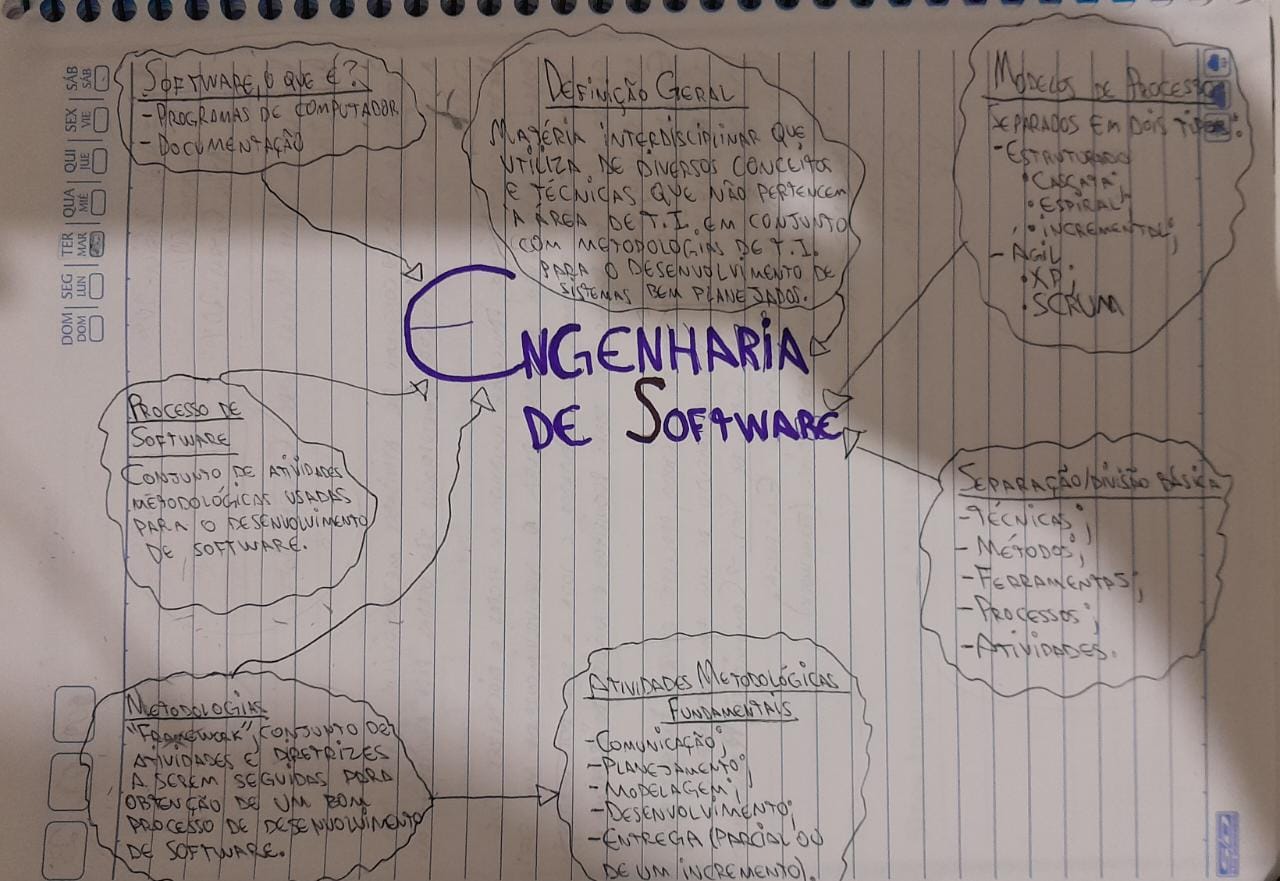 SOFTWARE, O QUE É?
- PROGRAMAS DE COMPUTADOR
- DOCUMENTAÇÃO
DEFINIÇÃO GERAL
MATÉRIA INTERDISCIPLINAR QUE
UTILIZA DE DIVERSOS CONCEITOS
E TÉCNICAS QUE NÃO PERTENCEM
A ÁREA DE T.I. EM CONJUNTO
COM METODOLOGIAS DE T.I.
PARA O DESENVOLVIMENTO DE
SISTEMAS BEM PLANEJADOS.
MODELOS DE PROCESSO
SEPARADOS EM DOIS TIPOS:
- ESTRUTURADO
• CASCATA;
• ESPIRAL;
• INCREMENTAL;
- ÁGIL
• XP;
• SCRUM
ENGENHARIA
DE SOFTWARE
PROCESSO DE
SOFTWARE
CONJUNTO DE ATIVIDADES
METODOLÓGICAS USADAS
PARA O DESENVOLVIMENTO
DE SOFTWARE.
SEPARAÇÃO/DIVISÃO BÁSICA
- TÉCNICAS;
- MÉTODOS;
- FERRAMENTAS;
- PROCESSOS;
- ATIVIDADES.
METODOLOGIAS
"FRAMEWORK", CONJUNTO DE
ATIVIDADES E DIRETRIZES
A SEREM SEGUIDAS PARA
OBTENÇÃO DE UM BOM
PROCESSO DE DESENVOLVIMENTO
DE SOFTWARE.
ATIVIDADES METODOLÓGICAS
FUNDAMENTAIS
- COMUNICAÇÃO;
- PLANEJAMENTO;
- MODELAGEM;
- DESENVOLVIMENTO;
- ENTREGA (PARCIAL OU
DE UM INCREMENTO).
DOM SEG TER QUA QUI SEX SÁB
DOM LUN MAR MIÉ JUE VIE SÁB